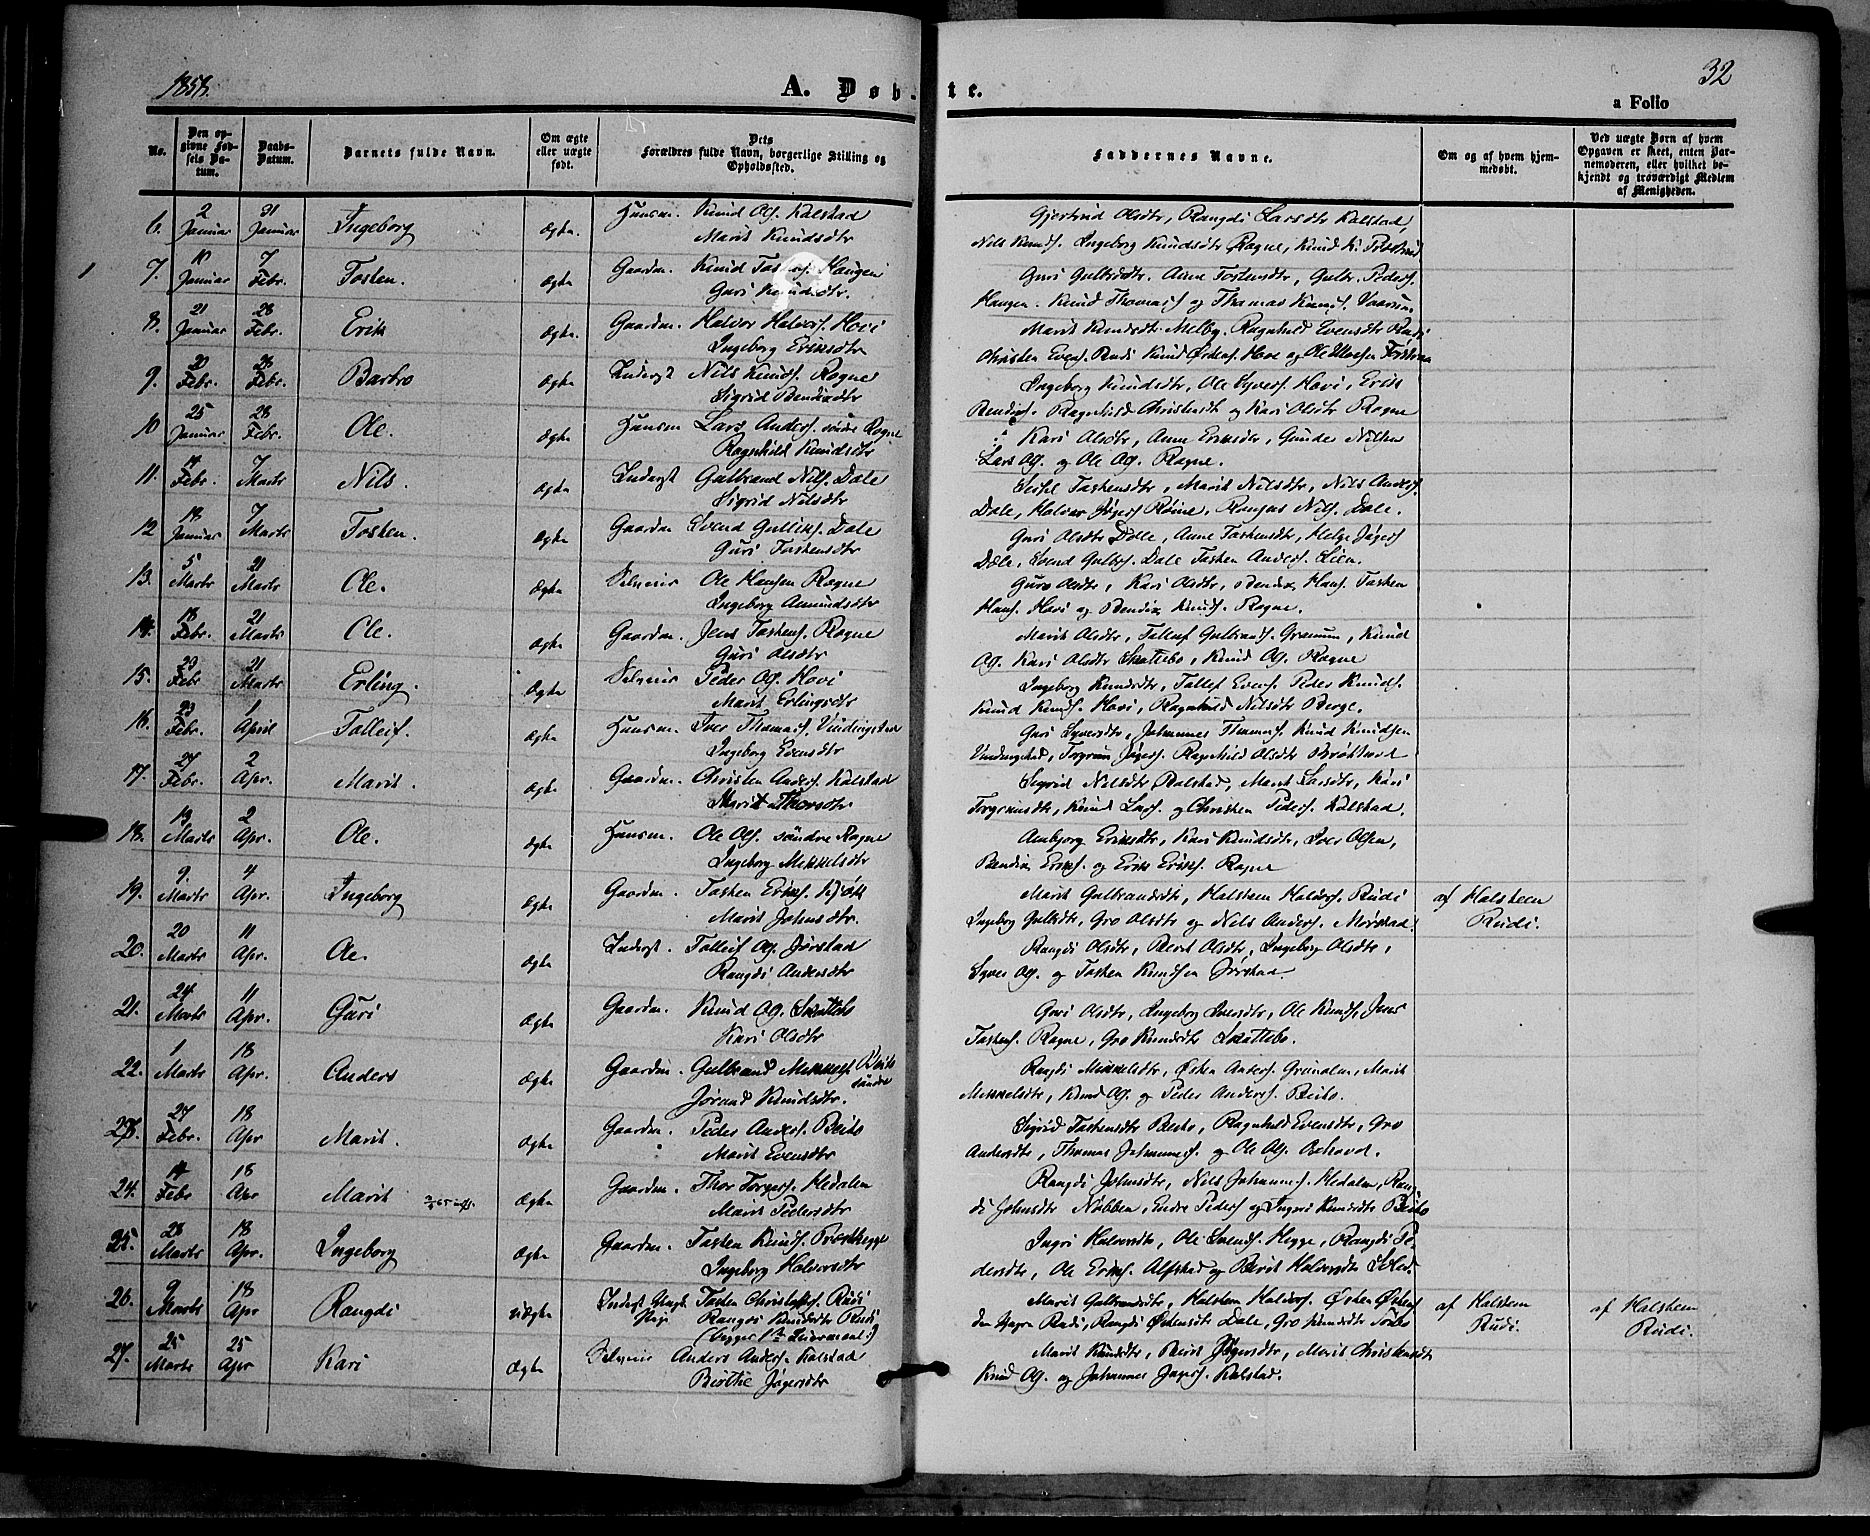 1858.
A. Døb-
te.
32
a Folio
No.
Den op-
givne Fød-
sels Da-
tum.
Daabs-
Datum.
Barnets fulde Navn.
Om ægte
eller uægte
født.
Dets
Forældres fulde Navn, borgerlige Stilling og
Opholdssted.
Faddernes Navne.
Om og af hvem hjem-
medøbt.
Ved uægte Børn af hvem
Opgaven er skeet, enten Bar-
nemoderen, eller hvilket be-
kjendt og troværdigt Medlem
af Menigheden.
6. 2 Januar 31 Januar Ingeborg Ægte. Huusm. Knud Ols. Kalstad
Marit Knudsdtr
Gjertrud Olsdtr, Rangdi Larsdtr Kalstad,
Nils Knuds. Ingeborg Knudsdtr Rogne, Knud K.
7. 10 Januar 7 Febr. Tosten. Ægte Gaardm. Knud Haugen
Guri Knudsdtr.
Guri Gulbrdtr. Anne Tostensdtr, Gulbr. Peders.
Haugen. Knud Thomass og Thomas Knuds.
8. 21 Januar 28 Febr. Erik Ægte. Gaardm. Halvor Halvors. Hovi
Ingeborg Eriksdtr
Marit Knudsdtr Melby. Ragnhild Evensdtr Rudi
Christen Evens. Rudi Knud Østens. Hove og Ole
9. 20 Febr. 28 Febr. Barbro Ægte Inderst Nils Knuds. Rogne
Sigrid Bendixdtr
Ingeborg Knudsdtr, Ole Syvers. Hovi, Erik
Bendixs. Ragnhild Christensdt og Kari Olsdtr Rogne
10 25 Januar 28 Febr. Ole. Ægte Huusm Lars Anders. søndre Rogne
Ragnhild Knudsdtr
Kari Olsdtr, Anne Eriksdtr, Gunder Nilsen
Lars Ols. og Ole Ols. Rogne.
11. 14 Febr. 7 Marts Nils. Ægte Inderst Gulbrand Nils. Dale
Sigrid Nilsdtr
Sidsel Tostensdtr, Marit Nilsdtr, Nils Anders.
Dale, Halvor Jøgers Nils. Dale.
12 18 Januar 7 Marts Tosten. Ægte Gaardm Svend Gulliks. Dale
Guri Tostensdtr
Guri Olsdtr Dale, Anne Tostensdtr, Helge Jøgers
Dale, Svend Gulbrs. Dale Tosten Anders. Lien.
13. 5 Marts 21 Marts Ole. Ægte Selveier Ole Hansen Rogne
Ingeborg Amundsdtr
Guro Olsdtr, Kari Olsdtr, Bendix Hans. Tosten
Hans. Hovi og Bendix Knuds. Rogne.
14. 18 Febr. 21 Marts Ole. Ægte Gaardm. Jens Tostens. Rogne
Guri Olsdtr
Marit Olsdtr, Tollef Gulbrands. Knud
Ols. Kari Olsdtr Skattebo, Knud Ols. Rogne
15. 23 Febr 21 Marts Erling. Ægte Selveier Peder Ols. Hovi
Marit Erlingsdtr
Ingeborg Knudsdtr, Tollef Evens. Peder Knuds.
Knud Knuds. Hovi, Ragnhild Nilsdtr Berge.
16. 23 Febr. 1 April Tolleif. Ægte Huusm. Iver Thomas.
Ingeborg Evensdtr
Guri Syversdtr, Johannes Thomas. Knud Knudsen
Torgrim Jøgers. Ragnhild Olsdtr
17. 27 Febr. 2 Apr. Marit. Ægte Gaardm. Christen Anders. Kalstad
Marit Thorsdtr
Sigrid Nilsdtr Kalstad, Marit Larsdtr, Kari
Torgrimsdtr, Knud Lars. og Christen Peders. Kalstad.
18. 19 Marts 2 Apr. Ole. Ægte Huusm. Ole Ols. søndre Rogne
Ingeborg Mikkelsdtr
Ambjorg Eriksdtr, Kari Knudsdtr, Iver Olsen,
Bendix Eriks. og Erik Eriks. Rogne
19. 9. Marts 4 Apr. Ingeborg Ægte Gaardm. Tosten Eriks. Kjøk
Marit Johnsdtr.
Marit Gulbrandsdtr, Halsteen Halvors. Rudi
Ingeborg Gulbrdtr, Gro Olsdtr og Nils Anders. Mørstad.
af Halsteen
Rudi.
20. 20 Marts 11 Apr. Ole. Ægte Inderst Tolleif Ols. Jørstad
Rangdi Andersdtr
Rangdi Olsdtr, Berit Olsdtr, Ingeborg Olsdtr,
Syver Ols. og Tosten Knudsen Jørstad.
21. 24 Marts 11 Apr. Guri Ægte Gaardm. Knud Ols. Skattebo
Kari Olsdtr
Guri Olsdtr, Ingeborg Iversdtr, Ole Knuds, Jens
Tostens. Rogne, Gro Knudsdtr Skattebo.
22. 1 Marts 18 Apr. Anders Ægte Gaardm. Gulbrand Mikkels. Beito
søndre
Jørand Knudsdtr.
Rangdi Mikkelsdtr, Østen Anders. Marit
Mikkelsdtr, Knud Ols. og Peder Anders. Beito.
23. 24 Febr. 18 Apr Marit. Ægte Gaardm. Peder Anders. Beito
Marit Evensdtr
Sigrid Tostensdtr Beito, Ragnhild Evensdtr, Gro
Andersdtr, Thomas Johannes. og Ole Ols.
24. 14 Febr 18 Apr Marit Ægte Gaardm. Thor Torgers. Hedalen
Marit Pedersdtr
Rangdi Johnsdtr, Nils Johannes. Hedalen, Rang
di Johnsdtr Nøbben, Endre Peders og Ingri Knudsdtr Beito
25. 28 Marts 18 Apr. Ingeborg Ægte Gaardm. Tosten Knuds.
Ingeborg Halvorsdtr
Ingri Halvorsdtr, Ole Svends. Hegge, Rangdi Pe
dersdtr, Ole Eriks. Alfstad og Berit Halvorsdtr
26. 9 Marts 18 Apr Rangdi uægte Inderst Ungk. Tosten Christophers. Rudi
Pige Rangdi Knudsdtr Rudi
Marit Gulbrandsdtr, Halsteen Halvors. Østen Østens
den yngre Rudi, Rangdi Østensdtr Dale, Gro Knudsdtr
af Halsteen
Rudi.
af Halsteen
Rudi.
27. 25 Marts 25 Apr Kari Ægte Selveier Anders Anders. Kalstad
Berthe Jøgersdtr
Marit Knudsdtr, Berit Jøgersdtr, Marit Christensdtr
Knud Ols. og Johannes Jøgers. Kalstad.